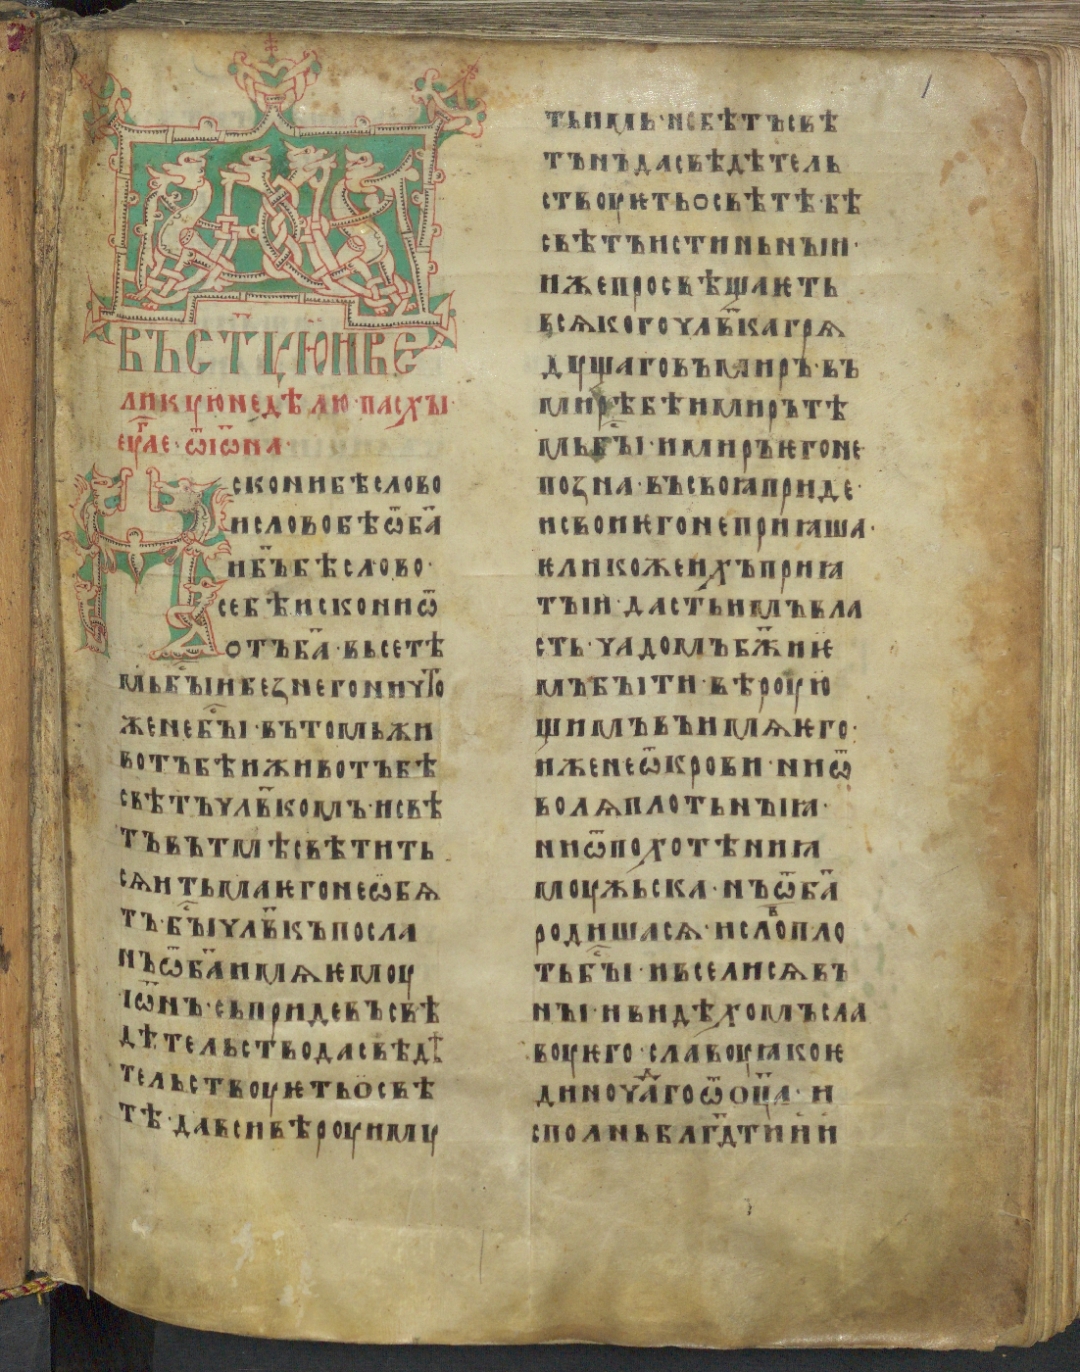 ВЪСТꙊЮИВЕ
ЛИКꙊЮНЕДѢЛЮ·ПАСХЪІ·
ЕꙊГ҃ЛЕ·ѾІѠАНА·
искониб̑ѣслово
исловобѣѿба҃
иб҃ъбѣслово·
себѣискониѿ
отъба҃·вьсетѣ
мьбъ҃іибезнегоничто
женебъ҃і·вътомьжи
вотъбѣиживотъбѣ
свѣтъчлв҃комъ·исвѣ
тъвътмѣсвѣтить
сѧитьмаѥгонеѡбѧ
тъ·бъ҃ічлв҃къпосла
нъѿба҃имѧѥмоу
іѡ҃нъ·сьпридевъсвѣ
дѣтельстводасвѣдѣ
тельствоуѥтьосвѣ
тѣ·давсивѣроуимꙋ
тьимь·несвѣтъсвѣ
тънъдасвѣдѣтель
ствоуѥтьосвѣтѣ·бѣ
свѣтъистиньнъіи·
ижепросвѣщаѥть
всѧкогочлв҃кагрѧ
дꙋщаговъмиръ·въ
мирѣбѣимирътѣ
мьбъ҃і·имиръѥгоне
позна·въсвоꙗприде·
исвоиѥгонеприꙗша·
ѥликожеихъприꙗ
тъіи·дастьимъвла
сть·чадомъбж҃иѥ
мъбъіти·вѣроую
щимъвъимѧѥго·
иженеѿкрови·ниѿ
волѧплотьнъіꙗ·
ниѿпохотѣниꙗ
моужьска·нъѿба҃
родишасѧ·исловопло
тьбъ҃і·ивселисѧвъ
нъі·ивидѣхомъсла
воуѥго·славоуꙗкоѥ
диночадагоѿоц҃а·и
сполньблг҃дтииии